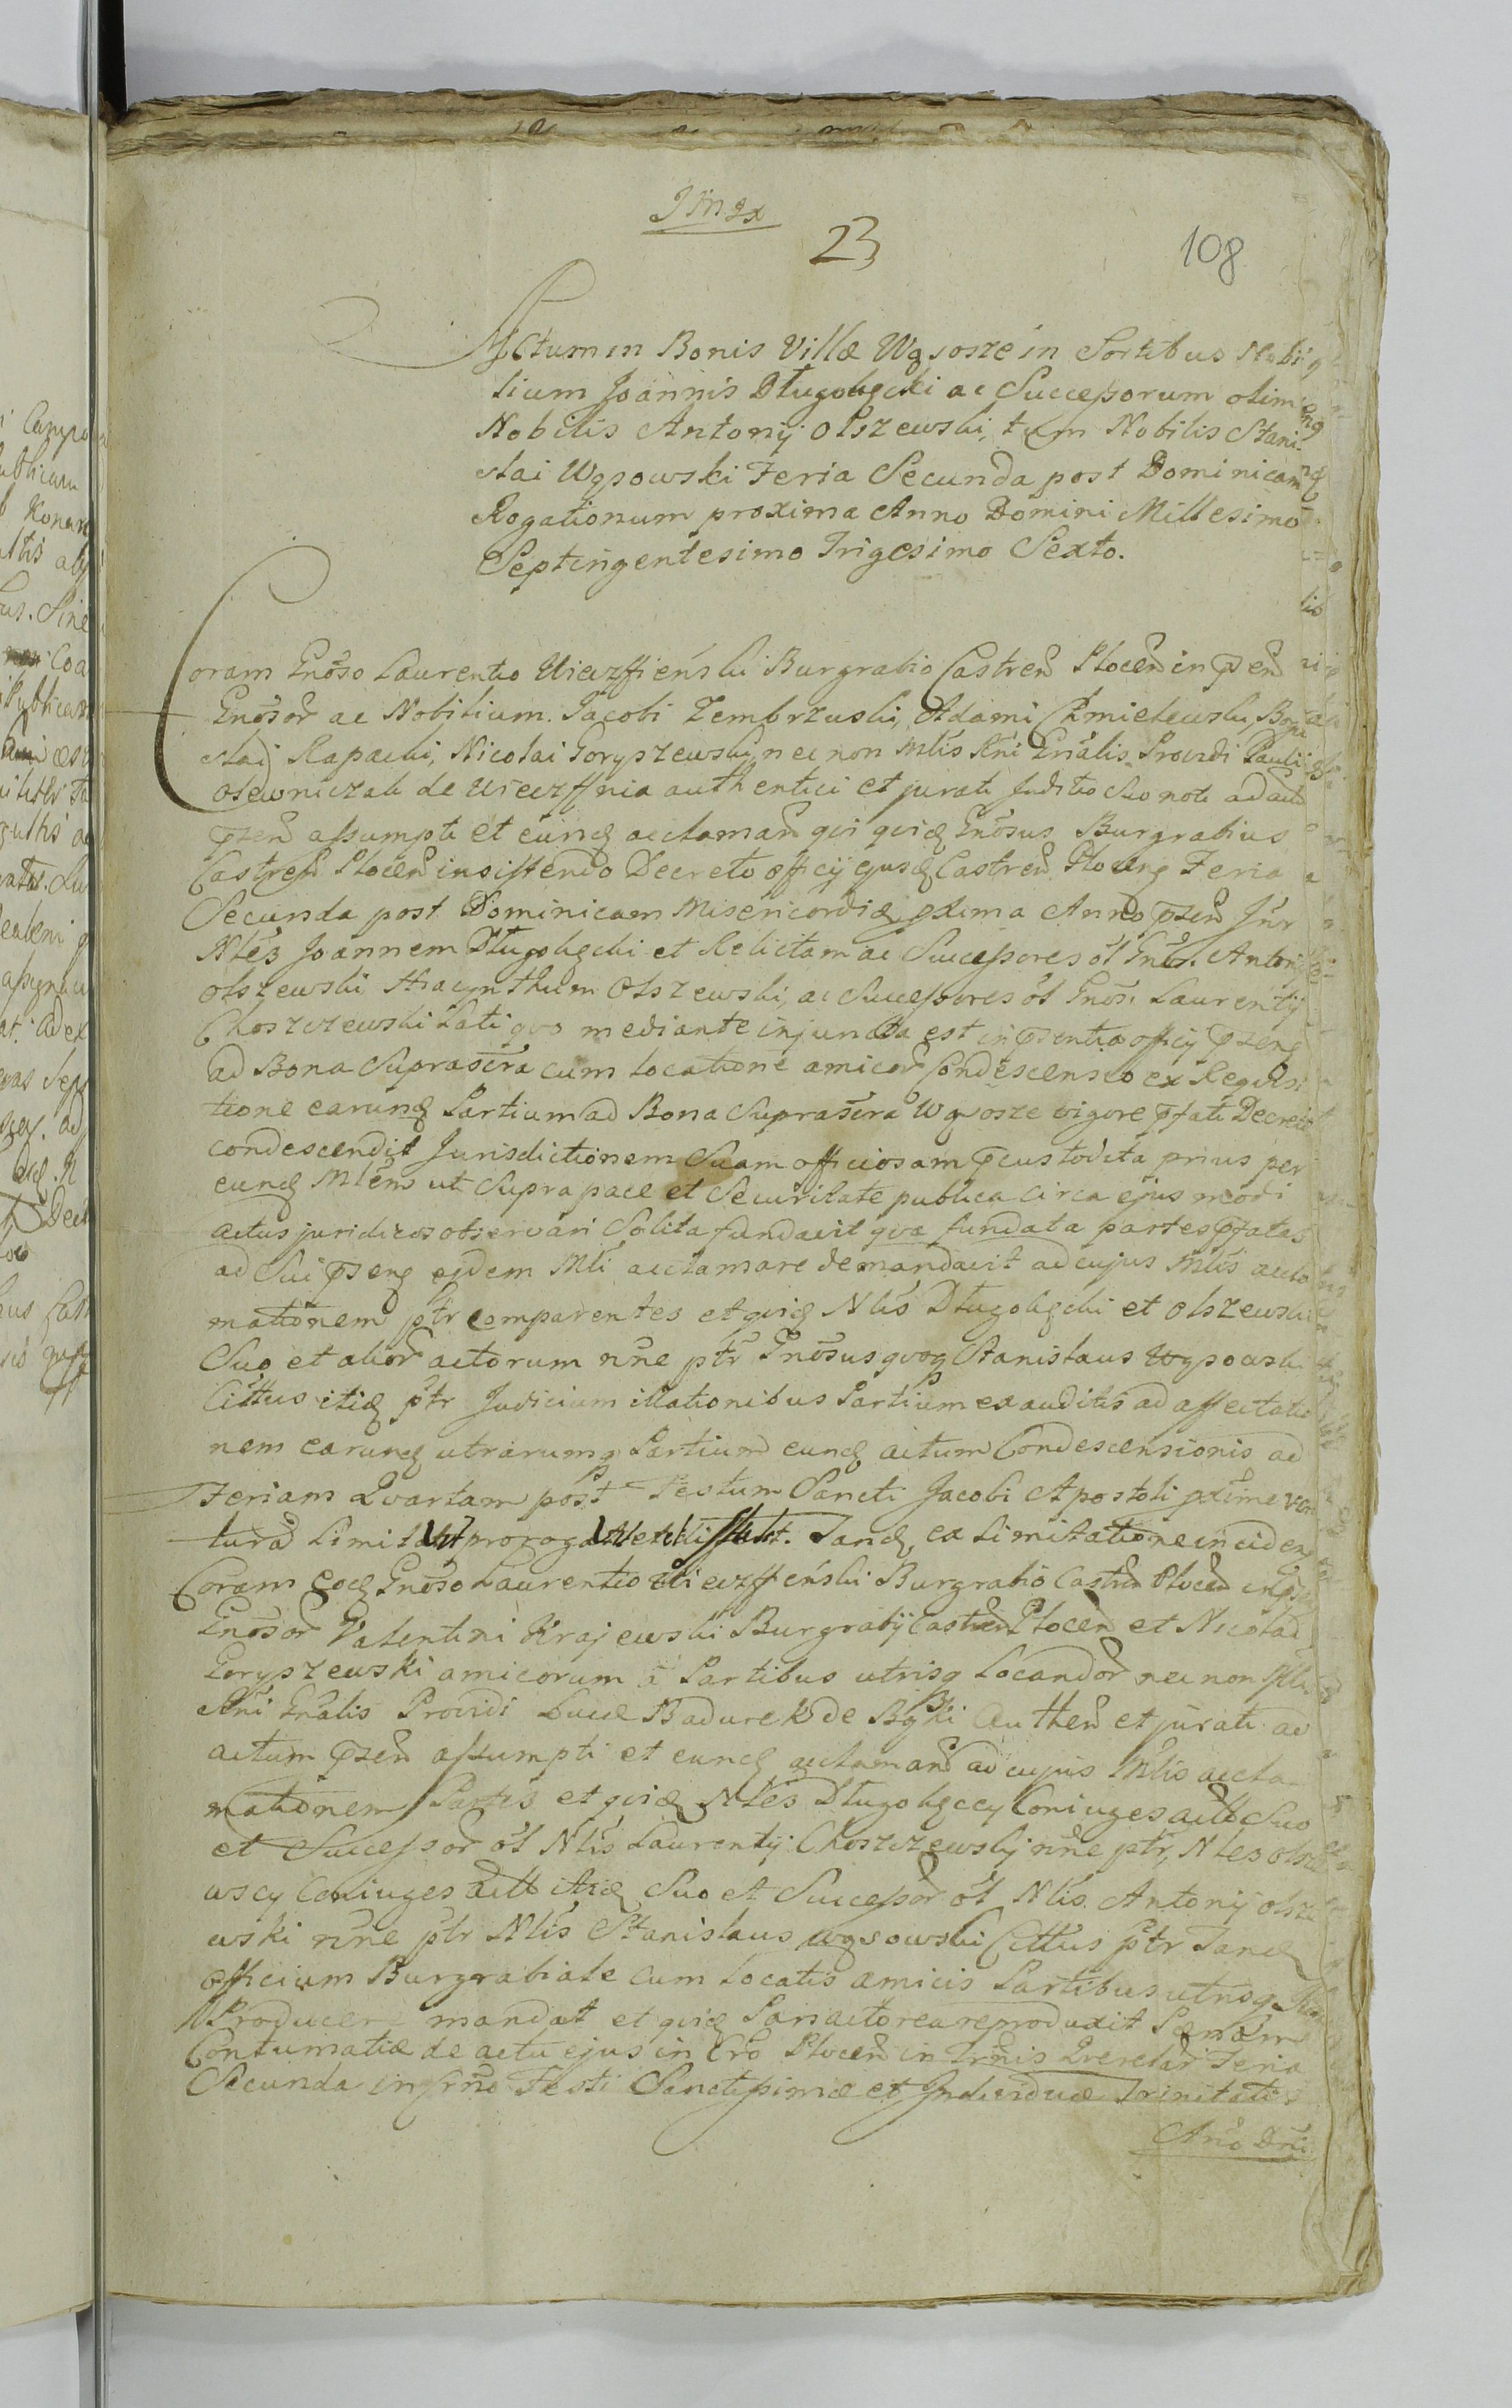 23
108
Actum in Bonis Villæ Wąsosze in Sortibus Nobi
lium Joannis Długołęcki ac Successorum olim
Nobilis Antonij Olszewski, tum Nobilis Stani
slai Wąsowski Feria Secunda post Dominicam
Rogationum proxima Anno Domini Millesimo
Septingentesimo Trigesimo Sexto.
Coram Gnõso Laurentio Burgrabio Castreñ Płoceñ in pseñ
Gnõsor ac Nobilium. Jacobi Zembrzuski, Adami Chmielewski,
slai Rapacki, Nicolai Goryszewski, nec non Mlis Rni Gnãlis Providi Pauli
de authentici et jurati Juditio suo noti ad actũ
pseñ assumpti et eunđ acclamanđ qui quiđ Gnõsus Burgrabius
Castreñ Płoceñ insistendo Decreto officij ejusđ Castreñ Płoceñ Feria
Secunda post Dominicam Misericordiæ pxima Anno pseñ
Nles Joannem Długołęcki et Relictam ac Successores ol Antonij
Olszewski Hiacynthum Olszewski, ac Successores ol Gnõs. Laurentij
Choszczewski Lati quo mediante injuncta est in psentia officij pseñ
ad Bona Suprascra cum locatione amicor Condescensio ex Requisi
tione earunđ Partium ad Bona Suprascra Wąsosze vigore pfati Decreti
condescendit Jurisdictionem Suam officiosam pcustodita prius per
eunđ Mlem ut Supra pace et Securitate publica circa ejus modi
actus juridicos observari Solita fundavit quæ fundata partes pfatas
ad Sui pseñ eidem Mli acclamare demandavit ad cujus Mlis accla
mationem ptr comparentes et quiđ Nlis Długołęcki et Olszewski
Suo et alior actorum nñe ptr Gnõsus quoq Stanislaus Wąsowski
Cittus itiđ ptr Judicium illationibus Partium exauditis ad affectatio
nem earunđ utrarumq Partium eunđ actum Condescensionis ad
Feriam Quartam post Festum Sancti Jacobi Apostoli pxime ven
turã Limitat prorogat et differt. Tanđ ex Limitatione incideñ
Coram eođ Gnõso Laurentio Burgrabio Castreñ Płoceñ in pseñ
Gnõsor Valentini Krajewski Burgrabij Castreñ Płoceñ et Nicolai
Goryszewski amicorum à Partibus utrisq Locandor nec non Mlis
Rni Gnãlis Providi Lucæ Badurek de Autheñ et jurati ad
actum pseñ assumpti et eunđ acclamanđ ad cujus Mlis accla
mationem Partes et quiđ Nles Długołęccy Coniuges Suo
et Successor ol Nlis Laurentij Choszczewskij nñe ptr, Nles Olsze
wscy Coniuges itiđ Suo et Successor ol Nlis. Antonij Olsze
wski nñe ptr Nlis Stanislaus Wąsowski Cittus ptr Tanđ
officium Burgrabiale cum locatis amicis Partibus utrisq
Producere mandat et quiđ Pars actorea reproduxit Pænam
Contumatiæ de actu ejus in Cro Płoceñ in Trñis Querelar Feria
Secunda in Crño Festi Sanctissimæ et Individuæ Trinitatis
Año Dñi